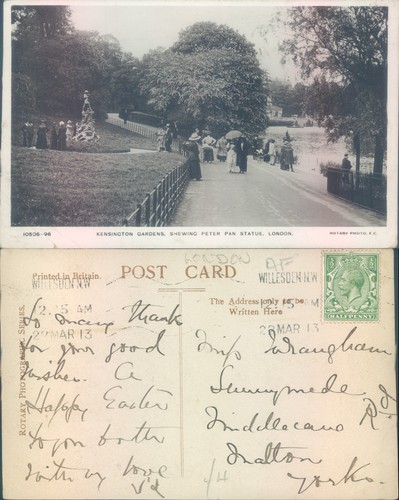 10506-96 KENSINGTON GARDENS, SHEWING PETER PAN STATUE, LONDON. ROTARY PHOTO, E.C.
LONDON
Printed in Britain.
POST CARD
WILLESDEN N.W
WILLESDEN N.W
The Address only to be
Written Here
12.15 AM
12.15 AM
28 MAR 13
28 MAR 13
HALFPENNY
ROTARY PHOTOGRAPHIC SERIES.
So many thank
for your good
wishes. A
Happy Easter
to you both
with my love
Miss Wrangham
Sunnymede
Middlecave Rd
Malton
Yorks.